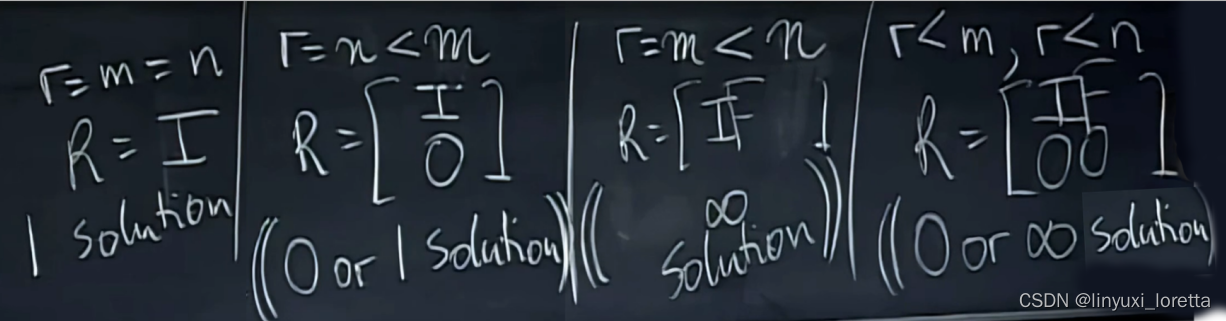 r=m=n
R=I
1 solution
r=n<m
R=[I
0]
(0 or 1 solution)
r=m<n
R=[IF]
(∞
solution)
r<m, r<n
R=[IF
00]
(0 or ∞ solution)
CSDN @linyuxi_loretta